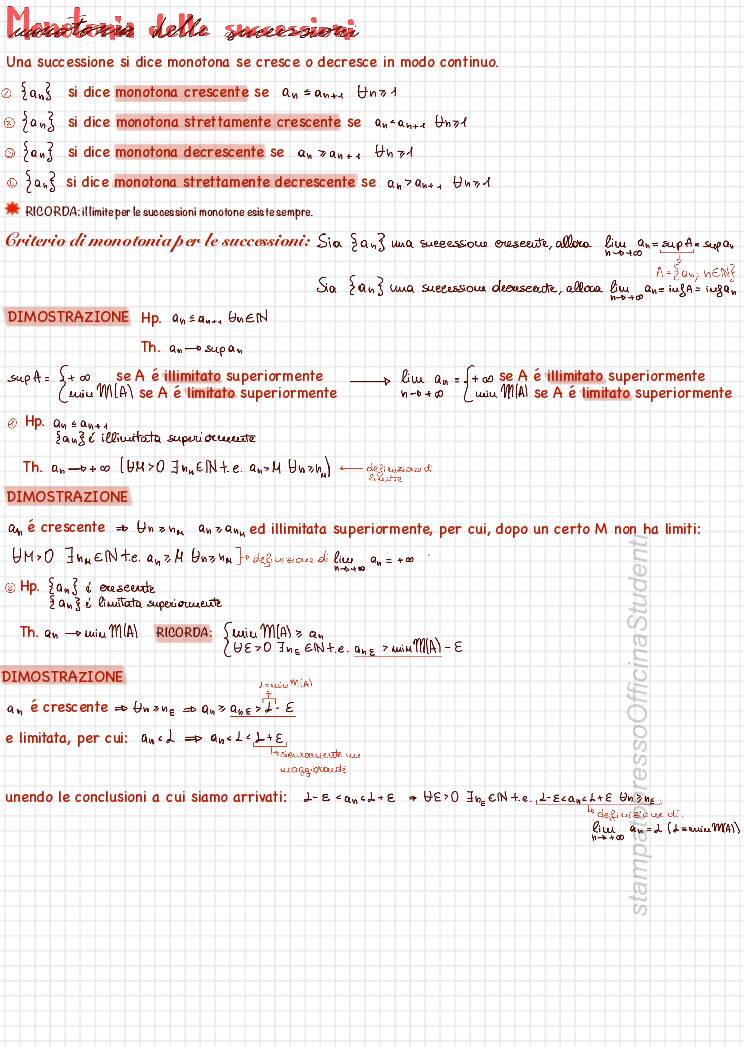 Monotonia delle successioni
Una successione si dice monotona se cresce o decresce in modo continuo.
① {aₙ} si dice monotona crescente se aₙ ≤ aₙ₊₁ ∀n≥1
② {aₙ} si dice monotona strettamente crescente se aₙ < aₙ₊₁ ∀n≥1
③ {aₙ} si dice monotona decrescente se aₙ ≥ aₙ₊₁ ∀n≥1
④ {aₙ} si dice monotona strettamente decrescente se aₙ > aₙ₊₁ ∀n≥1
RICORDA: il limite per le successioni monotone esiste sempre.
Criterio di monotonia per le successioni: Sia {aₙ} una successione crescente, allora lim n→+∞ aₙ = sup A = sup aₙ
A = {aₙ, n∈ℕ}
Sia {aₙ} una successione decrescente, allora lim n→+∞ aₙ = inf A = inf aₙ
DIMOSTRAZIONE Hp. aₙ ≤ aₙ₊₁ ∀n∈ℕ
Th. aₙ → sup aₙ
sup A = { +∞ se A é illimitato superiormente → lim n→+∞ aₙ = { +∞ se A é illimitato superiormente
min M(A) se A é limitato superiormente min M(A) se A é limitato superiormente
① Hp. aₙ ≤ aₙ₊₁
{aₙ} é illimitata superiormente
Th. aₙ → +∞ (∀M>0 ∃nₘ∈ℕ t.e. aₙ>M ∀n≥nₘ) ← definizione di
limite
DIMOSTRAZIONE
aₙ é crescente ⇒ ∀n≥nₘ aₙ≥aₙₘ ed illimitata superiormente, per cui, dopo un certo M non ha limiti:
∀M>0 ∃nₘ∈ℕ t.e. aₙ≥M ∀n≥nₘ ]→ definizione di lim n→+∞ aₙ = +∞
② Hp. {aₙ} é crescente
{aₙ} é limitata superiormente
Th. aₙ → min M(A) RICORDA: { min M(A) ≥ aₙ
∀ε>0 ∃nε∈ℕ t.e. aₙε > min M(A) - ε
DIMOSTRAZIONE
L = min M(A)
aₙ é crescente ⇒ ∀n≥nε ⇒ aₙ ≥ aₙε > L - ε
e limitata, per cui: aₙ < L ⇒ aₙ < L < L+ε
sicuramente un
maggiorante
unendo le conclusioni a cui siamo arrivati: L-ε < aₙ < L+ε ⇒ ∀ε>0 ∃nε∈ℕ t.e. L-ε<aₙ<L+ε ∀n≥nε
definizione di
lim n→+∞ aₙ = L (L = min M(A))
stampatopressoOfficinaStudenti